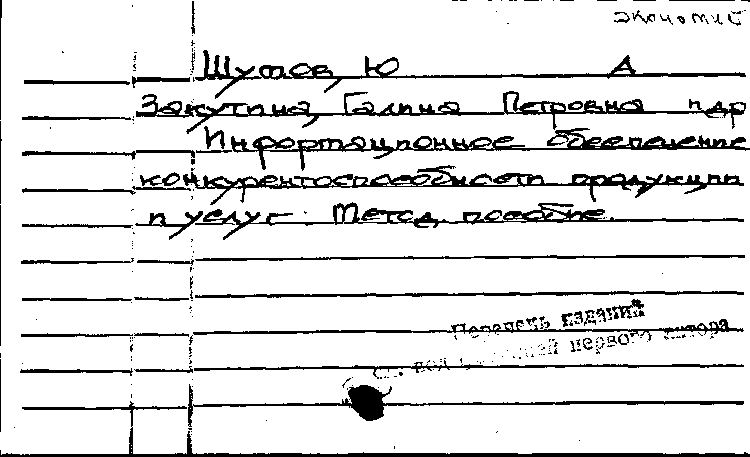 экономиб
Шутов, Ю А
Закутина, Галина Петровна и др
Информационное обеспечение
конкурентоспособности продукции
и услуг: Метод. пособие.
Перечень изданий
см. под фамилией первого автора